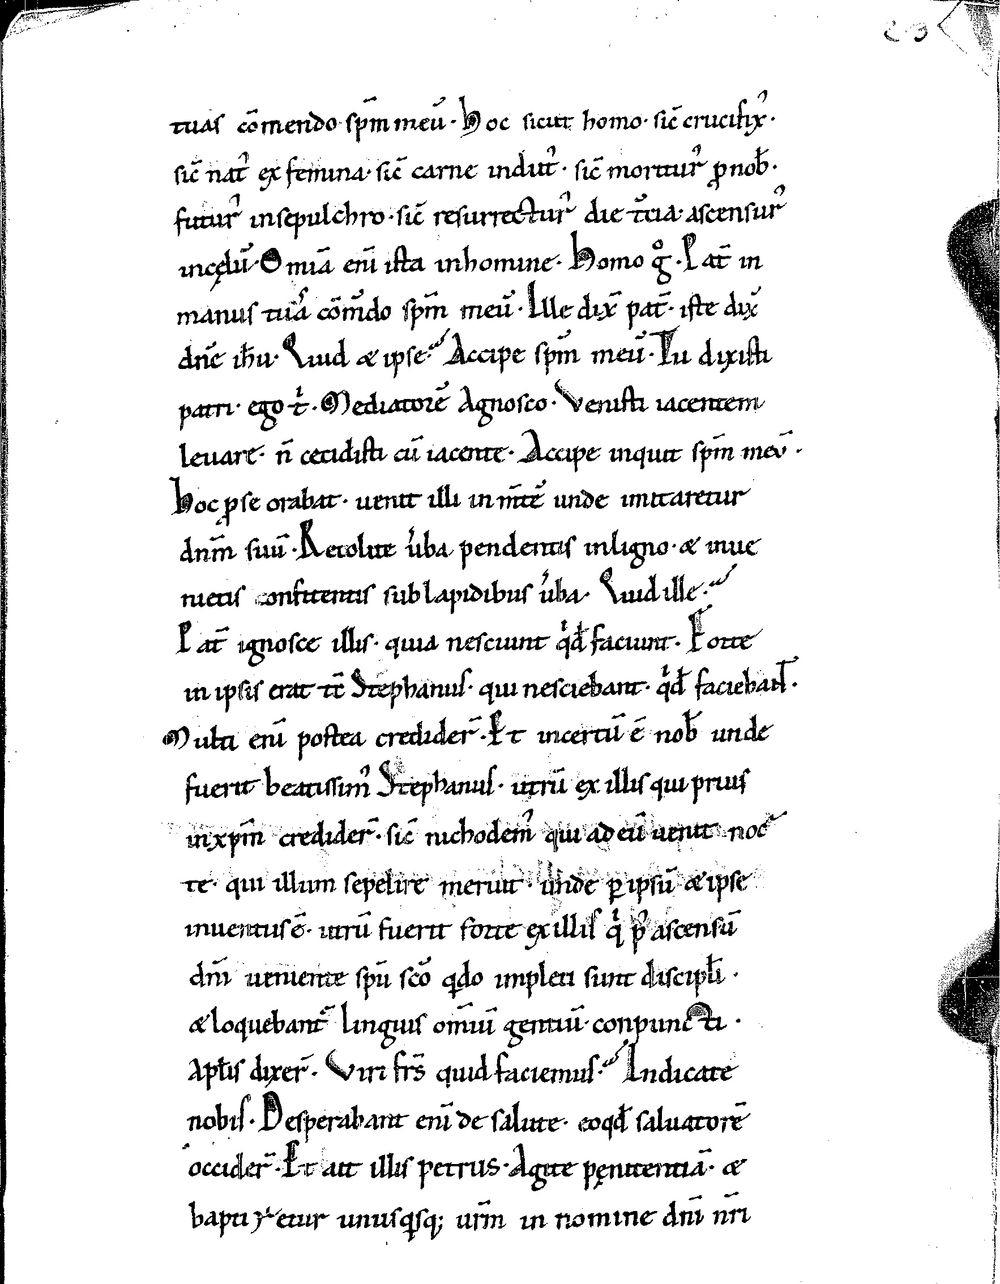 23
tuas cōmendo sp̄m meū. Hoc sicut homo. sic̄ crucifix᾽.
sic̄ nat᾽ ex femina. sic̄ carne indut᾽. sic̄ moritur᾽ ꝓ nob̄.
futur᾽ in sepulchro. sic̄ resurrectur᾽ die t̄cia. ascensur᾽
in cęlū. Omīa eniᷝ ista in homine. Homo gͦ. Pat̄ in
manus tuas cōm̄do sp̄m meū. Ille dix̄ pat̄. iste dix̄
dn̄e ih̄u. Quid & ipse? Accipe sp̄m meū. Tu dixisti
patri. ego tᷝ. Mediatorē Agnosco. Venisti iacentem
leuare. n̄ cecidisti cū iacente. Accipe inquit sp̄m meū.
Hoc ꝓ se orabat. uenit illi in m̄tē unde imitaretur
dn̄m suū. Recolite u᷑ba pendentis in ligno. & inue
nietis confitentis sub lapidibus u᷑ba. Quid ille?
Pat̄ ignosce illis. quia nesciunt qͥd faciunt. Forte
in ipsis erat tc̄ Stephanus. qui nesciebant. qͥd faciebant.
Multi enī postea credider̄. Et incertū ē nob̄ unde
fuerit beatissim᾽ Stephanus. utrū ex illis qui prius
in xp̄m credider̄. sic̄ nichodem᾽ qui ad eū uenit noc
te. qui illum sepelire meruit. unde ꝑ ipsū & ipse
inuentus ē. utrū fuerit forte ex illis qͥ p᾽ ascensū
dn̄i ueniente sp̄u scō qn̄do impleti sunt discipl̄i.
& loquebant᷑ linguis omīū gentiū. conpuncti.
Apl̄is dixer̄. Viri frs̄ quid faciemus? Indicate
nobis. Desperabant enī de salute. eo qd̄ saluatorē
occider̄. Et ait illis petrus. Agite pęnitentiā. &
baptizetur unusqͥsq; ur̄m in nomine dn̄i nr̄i